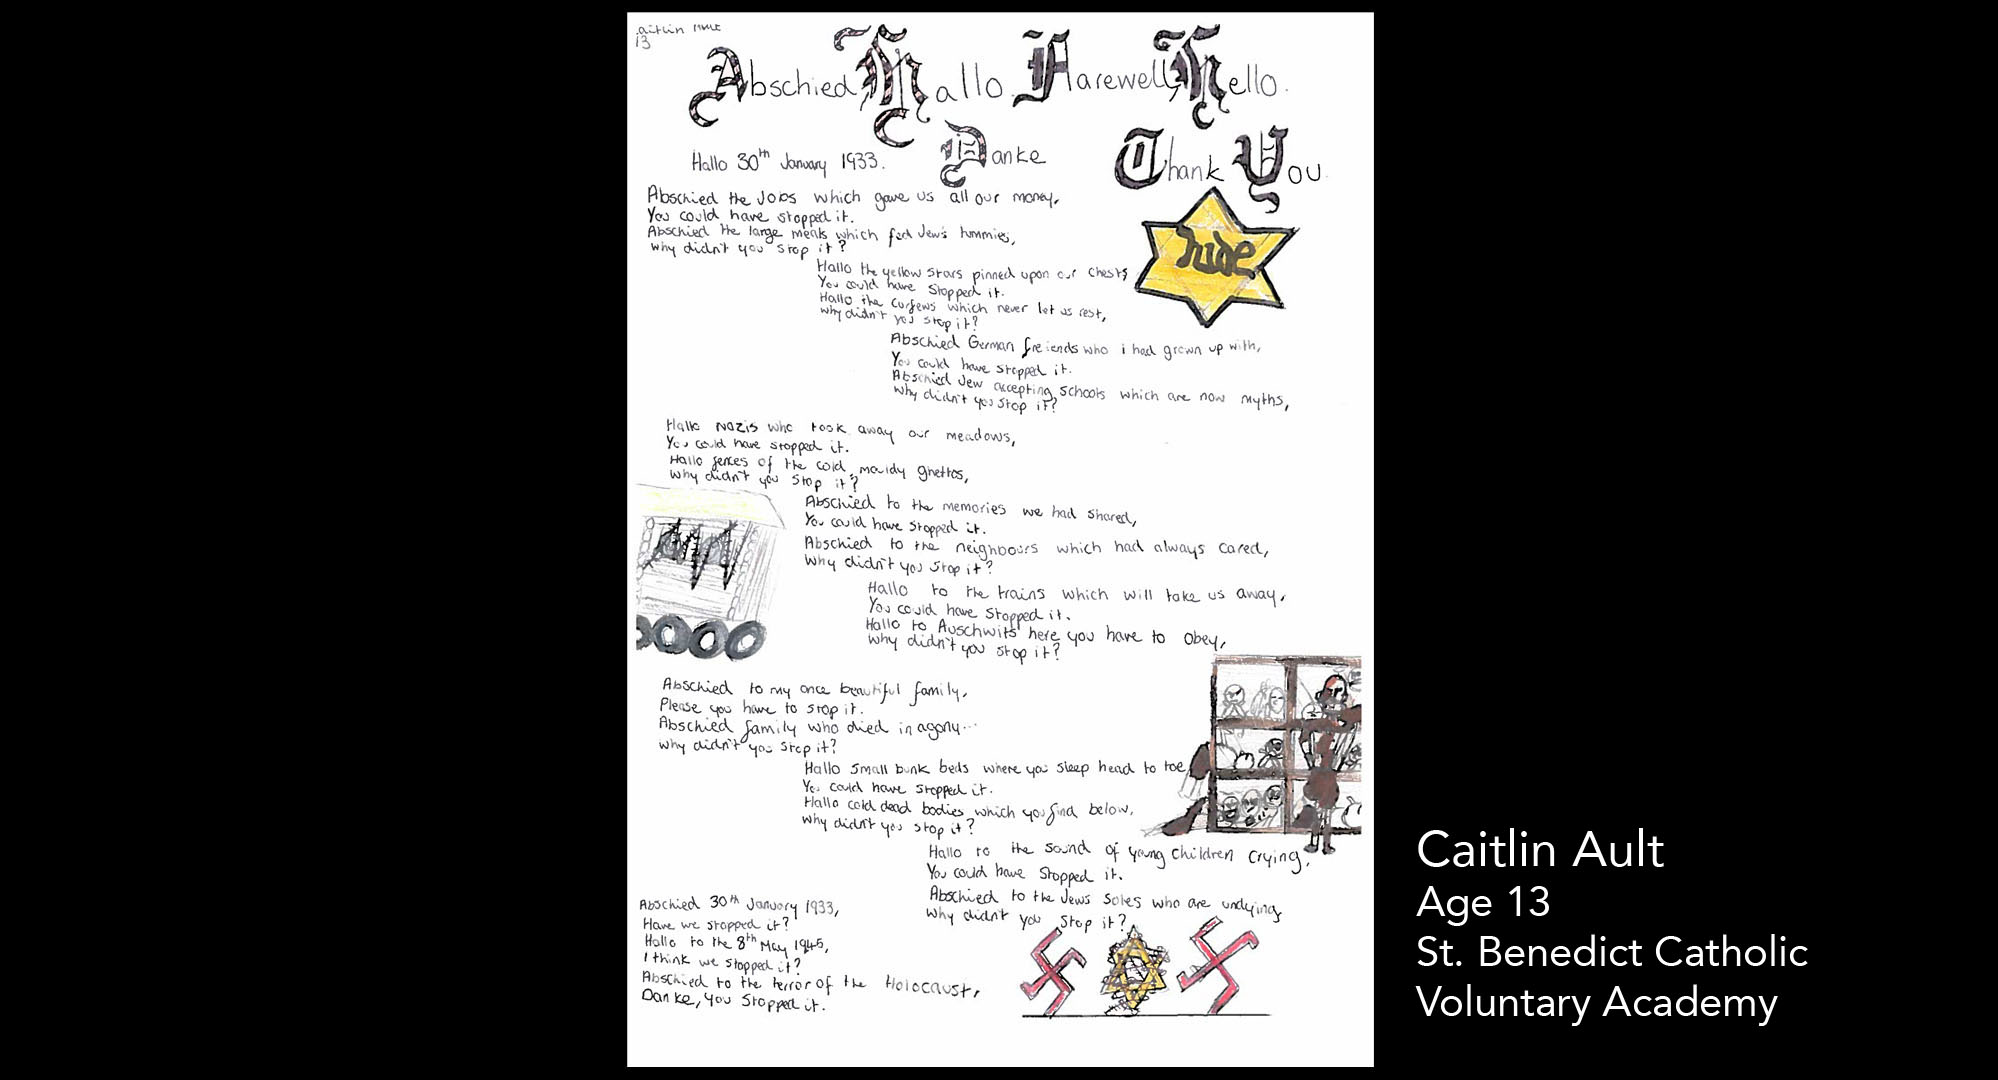 Caitlin Ault
13
Abschied, Hallo. Farewell, Hello.
Danke Thank You
Hallo 30th January 1933.
Abschied the Jobs which gave us all our money,
You could have stopped it.
Abschied the large meals which fed Jew's tummies,
why didn't you stop it?
Hallo the yellow stars pinned upon our chests
You could have stopped it.
Hallo the curfews which never let us rest,
why didn't you stop it?
Jude
Abschied German freiends who i had grown up with,
You could have stopped it.
Abschied Jew accepting schools which are now myths,
Why didn't you stop it?
Hallo Nazis who took away our meadows,
You could have stopped it.
Hallo fences of the cold, mouldy ghettos,
Why didn't you stop it?
Abschied to the memories we had shared,
You could have stopped it.
Abschied to the neighbours which had always cared,
Why didn't you stop it?
Hallo to the trains which will take us away,
You could have stopped it.
Hallo to Auschwits here you have to obey,
Why didn't you stop it?
Abschied to my once beautiful family,
Please you have to stop it.
Abschied family who died in agony...
Why didn't you stop it?
Hallo small bunk beds where you sleep head to toe
You could have stopped it.
Hallo cold dead bodies which you find below,
Why didn't you stop it?
Hallo to the sound of young children crying,
You could have stopped it.
Abschied to the Jews soles who are undying
Why didn't you stop it?
Abschied 30th January 1933,
Have we stopped it?
Hallo to the 8th May 1945,
I think we stopped it?
Abschied to the terror of the Holocaust,
Danke, you stopped it.
Caitlin Ault
Age 13
St. Benedict Catholic
Voluntary Academy